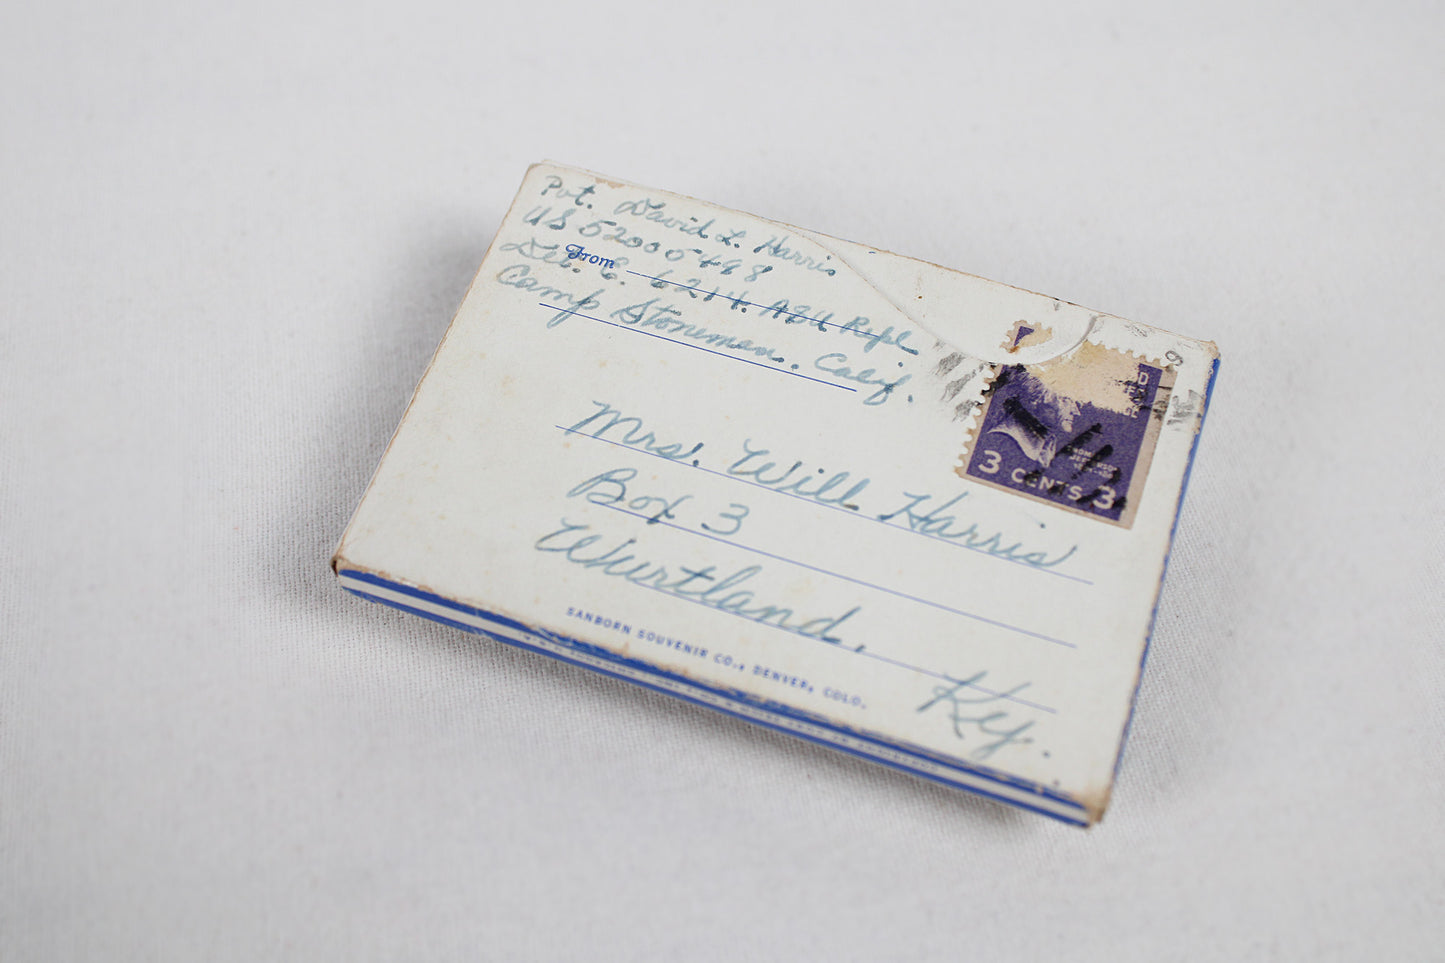 Pvt. David L. Harris
US 52005498
From
Det. E. 6214 ASU Repl
Camp Stoneman, Calif.
3 CENTS 3
Mrs. Will Harris
Box 3
Wurtland,
Ky.
SANBORN SOUVENIR CO., DENVER, COLO.